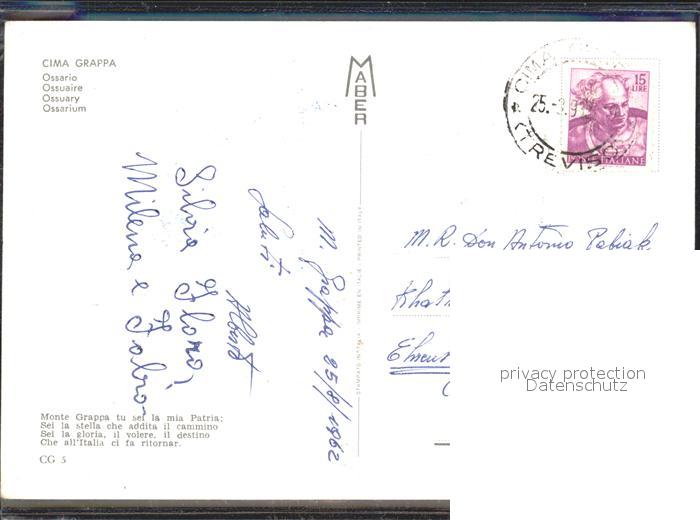 CIMA GRAPPA
Ossario
Ossuaire
Ossuary
Ossarium
MABER
15
LIRE
ITALIANE
CIMA
25.
(TREVISO)
M. Grappa 25/8/1962
Saluti
Silvia Flora,
Milena e Fabio
STAMPATO IN ITALIA - IMPRIMÉ EN ITALIE - PRINTED IN ITALY
M. R. Don Antonio Pabiak
privacy protection
Datenschutz
Monte Grappa tu sei la mia Patria;
Sei la stella che addita il cammino
Sei la gloria, il volere, il destino
Che all'Italia ci fa ritornar.
CG 5